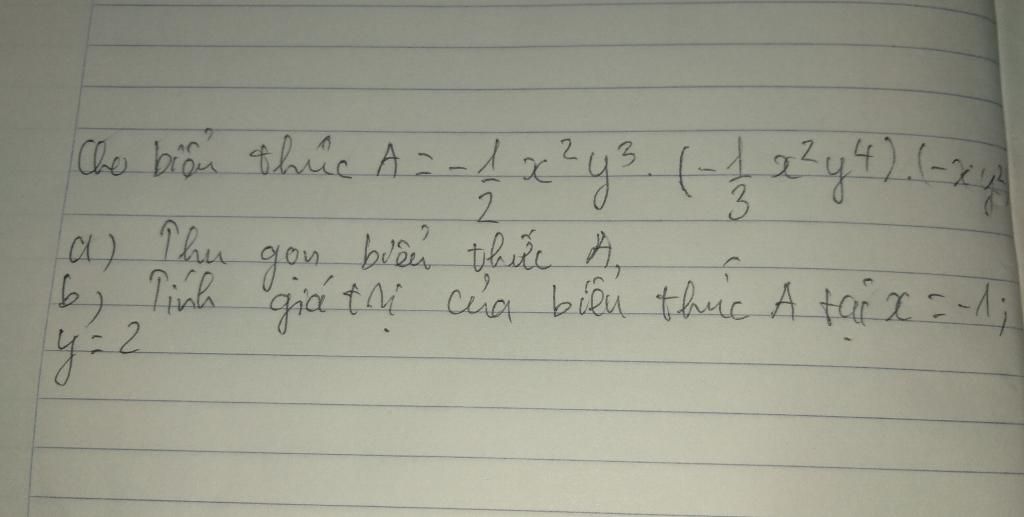 Cho biểu thức A = -\frac{1}{2} x²y³. (-\frac{1}{3} x²y⁴).(-xy²
a) Thu gọn biểu thức A,
b) Tính giá trị của biểu thức A tại x = -1;
y = 2